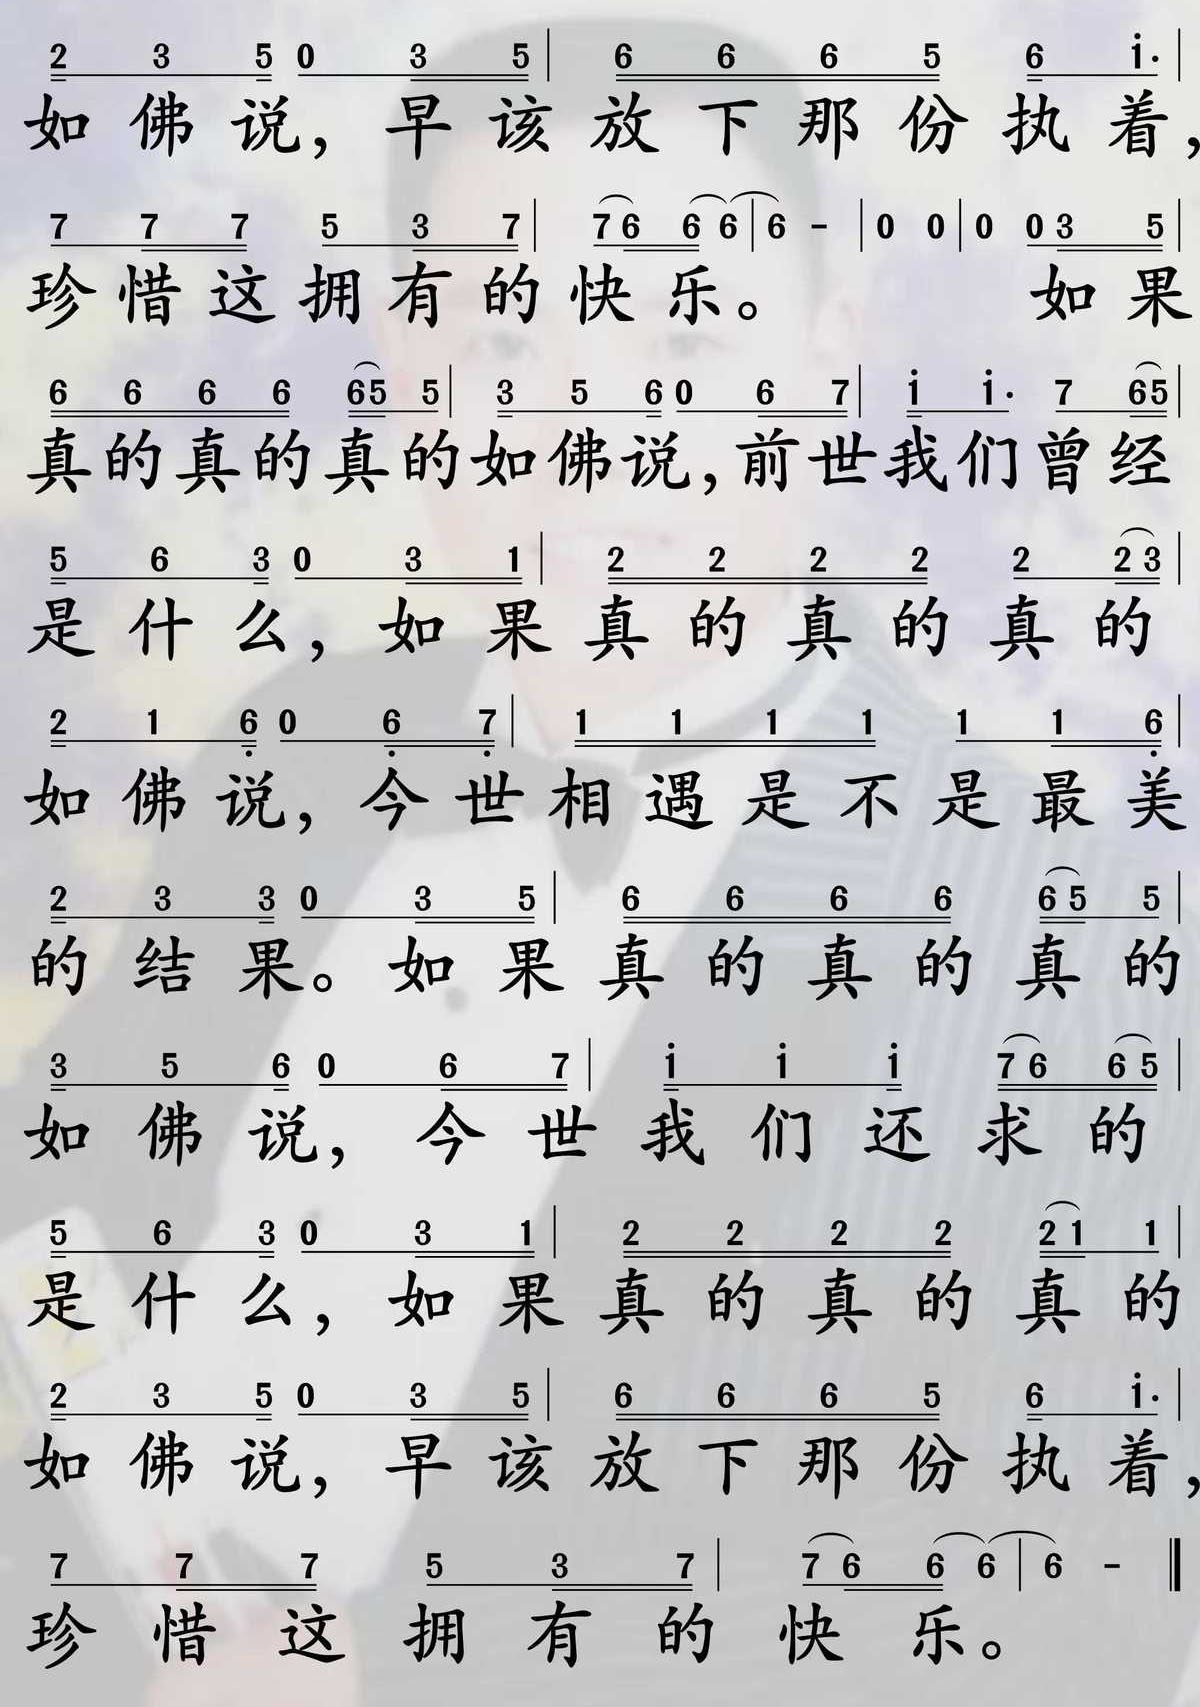 2 3 5 0 3 5 | 6 6 6 5 6 i· |
如佛说，早该放下那份执着，
7 7 7 5 3 7 | 76 6 6 | 6 - | 0 0 | 0 03 5 |
珍惜这拥有的快乐。 如果
6 6 6 6 65 5 | 3 5 6 0 6 7 | i i· 7 65 |
真的真的真的如佛说，前世我们曾经
5 6 3 0 3 1 | 2 2 2 2 2 23 |
是什么，如果真的真的真的
2 1 6̣ 0 6̣ 7̣ | 1 1 1 1 1 1 6̣ |
如佛说，今世相遇是不是最美
2 3 3 0 3 5 | 6 6 6 6 65 5 |
的结果。如果真的真的真的
3 5 6 0 6 7 | i i i 76 65 |
如佛说，今世我们还求的
5 6 3 0 3 1 | 2 2 2 2 21 1 |
是什么，如果真的真的真的
2 3 5 0 3 5 | 6 6 6 5 6 i· |
如佛说，早该放下那份执着，
7 7 7 5 3 7 | 76 6 6 | 6 - ‖
珍惜这拥有的快乐。